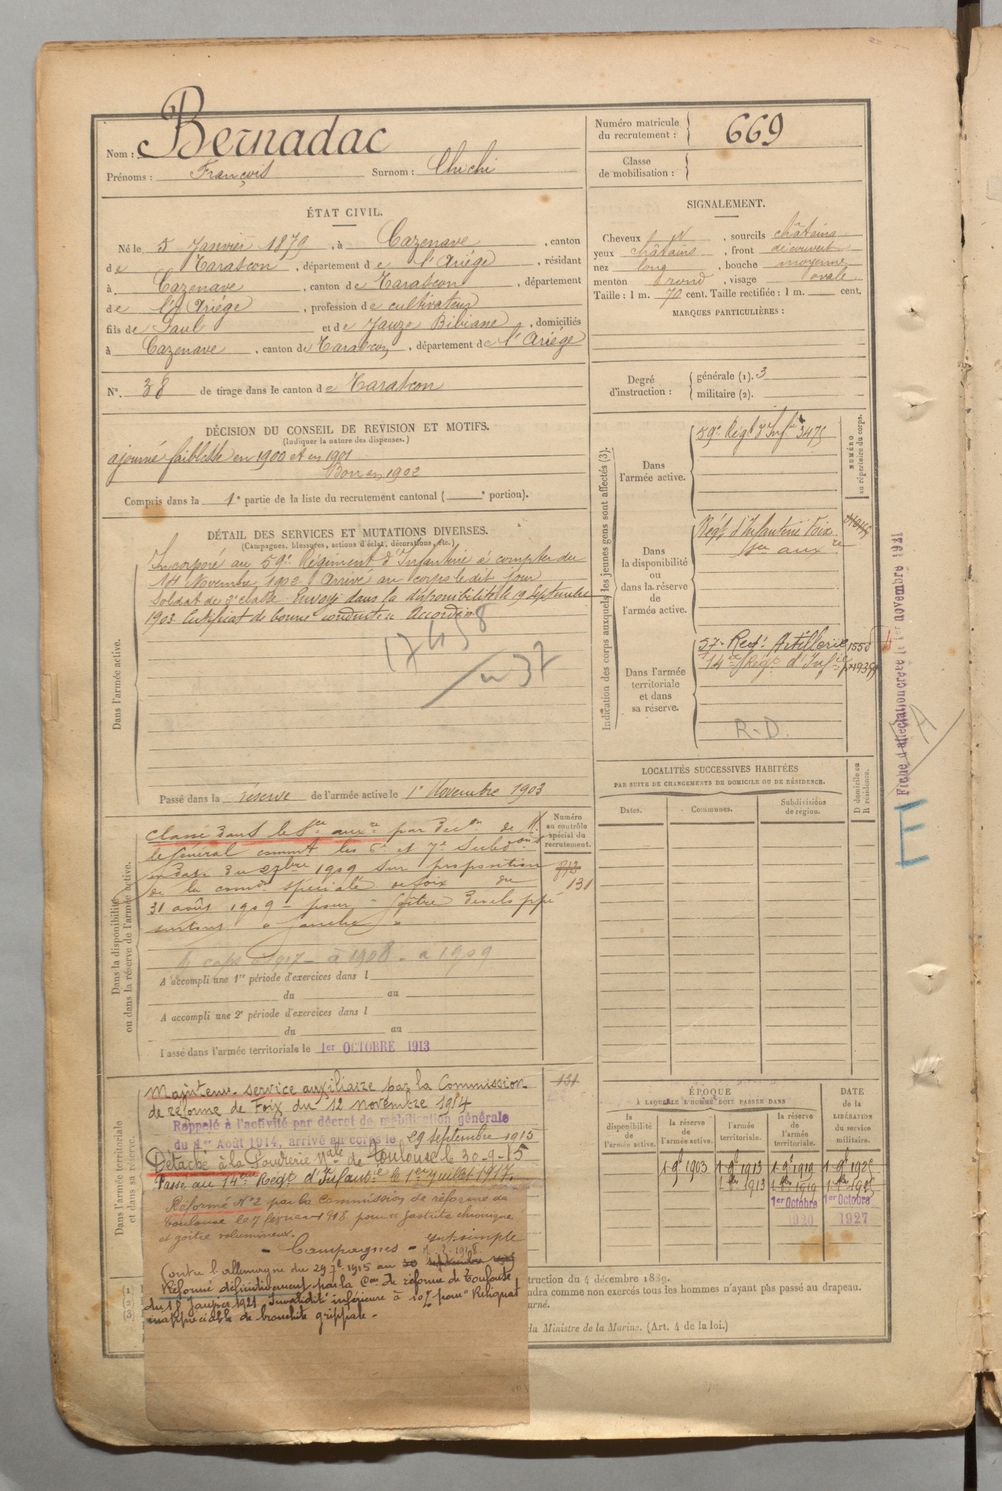 Nom : Bernadac
Prénoms : François Surnom : Chichi
Numéro matricule du recrutement : 669
Classe de mobilisation :
ÉTAT CIVIL.
Né le 5 Janvier 1879, à Cazenave, canton
de Tarascon, département de l'Ariège, résidant
à Cazenave, canton de Tarascon, département
de l'Ariège, profession de cultivateur
fils de Paul et de Jauze Bibiane, domiciliés
à Cazenave, canton de Tarascon, département de l'Ariège
N° 38 de tirage dans le canton de Tarascon
SIGNALEMENT.
Cheveux , sourcils châtains
yeux châtains, front découvert
nez long, bouche moyenne
menton rond, visage ovale
Taille : 1 m. 70 cent. Taille rectifiée : 1 m. cent.
MARQUES PARTICULIÈRES :
Degré d'instruction : générale (1). 3
militaire (2).
DÉCISION DU CONSEIL DE REVISION ET MOTIFS.
(Indiquer la nature des dispenses.)
ajourné faiblesse en 1900 et en 1901
Bon en 1902
Compris dans la 1e partie de la liste du recrutement cantonal ( e portion).
DÉTAIL DES SERVICES ET MUTATIONS DIVERSES.
(Campagnes, blessures, actions d'éclat, décorations, etc.)
Dans l'armée active.
Incorporé au 59e Régiment d'Infanterie à compter du
14 Novembre 1902. Arrivé au corps le dit jour
Soldat de 2e classe. Envoyé dans la disponibilité le 19 Septembre
1903. Certificat de bonne conduite "Accordé"
17458
37
Passé dans la réserve de l'armée active le 1er Novembre 1903
Indication des corps auxquels les jeunes gens sont affectés (3).
NUMÉRO au répertoire du corps.
Dans l'armée active.
59e Régt d'Infie 3475
Dans la disponibilité ou dans la réserve de l'armée active.
Régt d'Infanterie Foix
Ser auxre
Dans l'armée territoriale et dans sa réserve.
57e Regt Artillerie 1550
14e Régt d'Infie
R-D.
Fiche d'affectation créée le 1er novembre 1921
A
E
LOCALITÉS SUCCESSIVES HABITÉES
PAR SUITE DE CHANGEMENTS DE DOMICILE OU DE RÉSIDENCE.
Dates. Communes. Subdivisions de région. D domicile ou R résidence.
Dans la disponibilité ou dans la réserve de l'armée active.
Numéro au contrôle spécial du recrutement.
131
Classé dans le Sce auxre par Decon de Mr
le Général commt les 6e et 7e Subdons
en date du 27bre 1909 sur proposition
de la comon spéciale de Foix du
31 août 1909 - pour - goitre développé
surtout à gauche
à 1908 - a 1909
A accompli une 1re période d'exercices dans l
du au
A accompli une 2e période d'exercices dans l
du au
Passé dans l'armée territoriale le 1er OCTOBRE 1913
Dans l'armée territoriale et dans sa réserve.
131
Maintenu service auxiliaire par la Commission
de réforme de Foix du 12 novembre 1914
Rappelé à l'activité par décret de mobilisation générale
du 1er Août 1914, arrivé au corps le 29 septembre 1915
Détaché à la Poudrerie Nale de Toulouse le 30-9-15
Passé au 14me Régt d'Infantie le 1er juillet 1917.
Réformé N° 2 par la commission de réforme de
Toulouse le 7 février 1918 pour "gastrite chronique
et goitre volumineux.
- Campagnes - simple
Contre l'allemagne du 29 7bre 1915 au
Réformé définitivement par la Con de réforme de Toulouse
du 18 Janvier 1921 Invalidité inférieure à 10% pour "Reliquat
inappréciable de bronchite grippale.
ÉPOQUE
À LAQUELLE L'HOMME DOIT PASSER DANS
la disponibilité de l'armée active.
la réserve de l'armée active.
l'armée territoriale.
la réserve de l'armée territoriale.
DATE de la LIBÉRATION du service militaire.
1 9bre 1903 1 9bre 1913 1 9bre 1919 1 9bre 1925
1er Octobre 1er Octobre
1927
truction du 4 décembre 1889.
udra comme non exercés tous les hommes n'ayant pas passé au drapeau.
urné.
du Ministre de la Marine. (Art. 4 de la loi.)